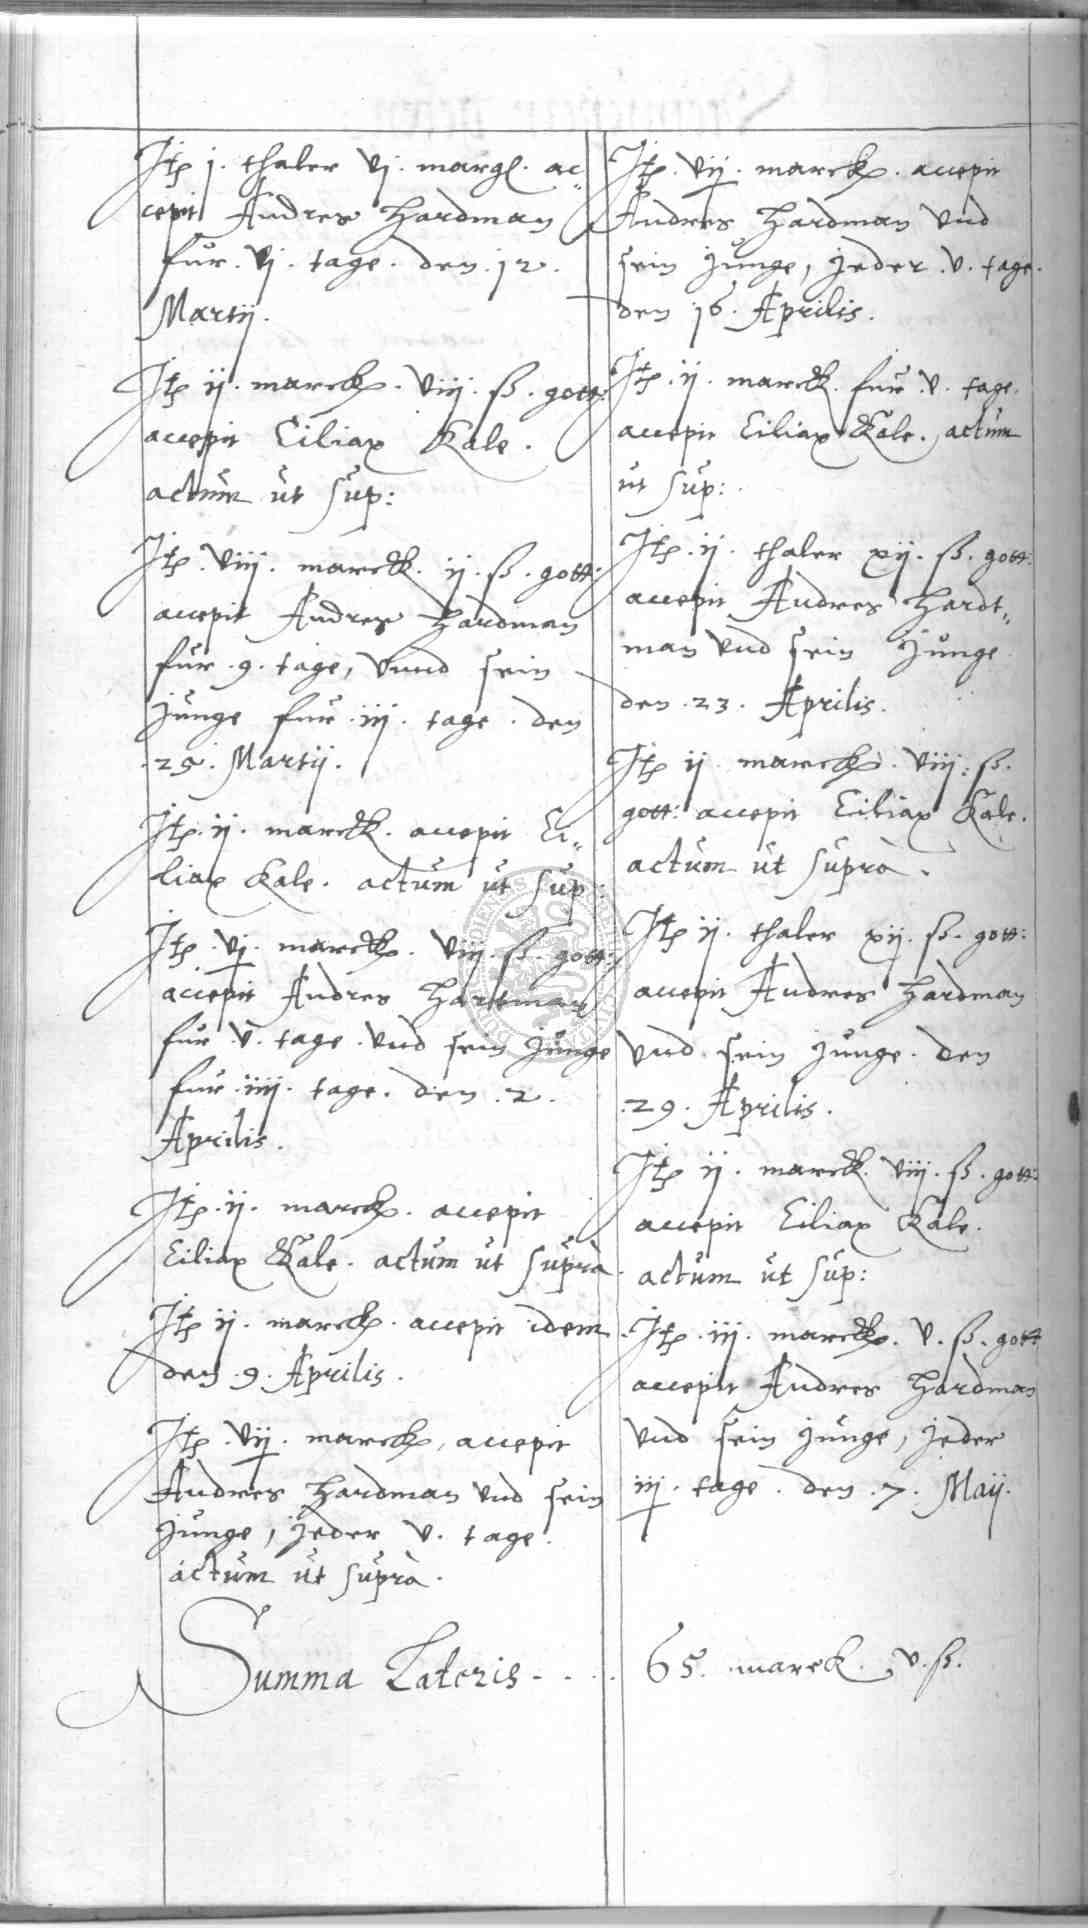 Itē j. thaler vj. margl. ac„
cepit Andres Hardman
fur. vj. tage. den. 12.
Martij.
Itē ij. marck. viij. ß. gott:
accepit Ciliax Kale.
actum ut sup:
Itē. viij. marck. ij. ß. gott:
accepit Andres Hardman
fur. 9. tage, vnnd sein
Junge fur. iij. tage. den
.25. Martij.
Itē. ij. marck. accepit Ci„
liax Kale. actum ut sup:
Itē. vj. marck. viij. ß. gott:
accepit Andres Hartman
fur. v. tage. vnd sein Junge
fur. iiij. tage. den. 2.
Aprilis.
Itē. ij. marck. accepit
Ciliax Kale. actum ut suprà.
Itē ij. marck. accepit idem
den. 9. Aprilis.
Itē. vij. marck, accepit
Andres Hardman vnd sein
Junge, jeder v. tage.
actum ut suprà.
Itē. vij. marck. accepit
Andres Hardman vnd
sein Junge, Jeder. v. tage.
den 16. Aprilis.
Itē. ij. marck. fur v. tage.
accepit Ciliax Kale. actum
ut sup:
Itē. ij. thaler xij. ß. gott:
accepit Andres Hardt„
man vnd sein Junge
den. 23. Aprilis.
Itē ij marck. viij: ß.
gott: accepit Ciliax Kale.
actum ut suprà.
Itē ij. thaler xij. ß. gott:
accepit Andres Hardman
vnd. sein Junge. den
.29. Aprilis.
Itē ij. marck. viij. ß. gott:
accepit Ciliax Kale.
actum ut sup:
Itē. iij. marck. v. ß. gott
accepit Andres Hardman
vnd sein Junge, Jeder
iij. tage. den. 7. Maij.
Summa Lateris - . . . 65. marck. v. ß.